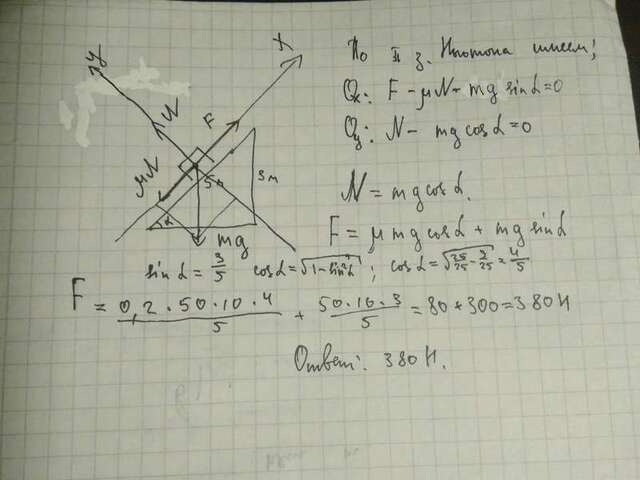 По II з. Ньютона имеем;
Ox: F - μN - mg sin α = 0
Oy: N - mg cos α = 0
N = mg cos α.
F = μmg cos α + mg sin α
y
x
N
F
μN
5м
3м
α
mg
sin α = 3/5 cos α = √(1 - sin²α) ; cos α = √(25/25 - 9/25) = 4/5
F = 0,2 · 50 · 10 · 4 / 5 + 50 · 10 · 3 / 5 = 80 + 300 = 380 Н
Ответ: 380 Н.